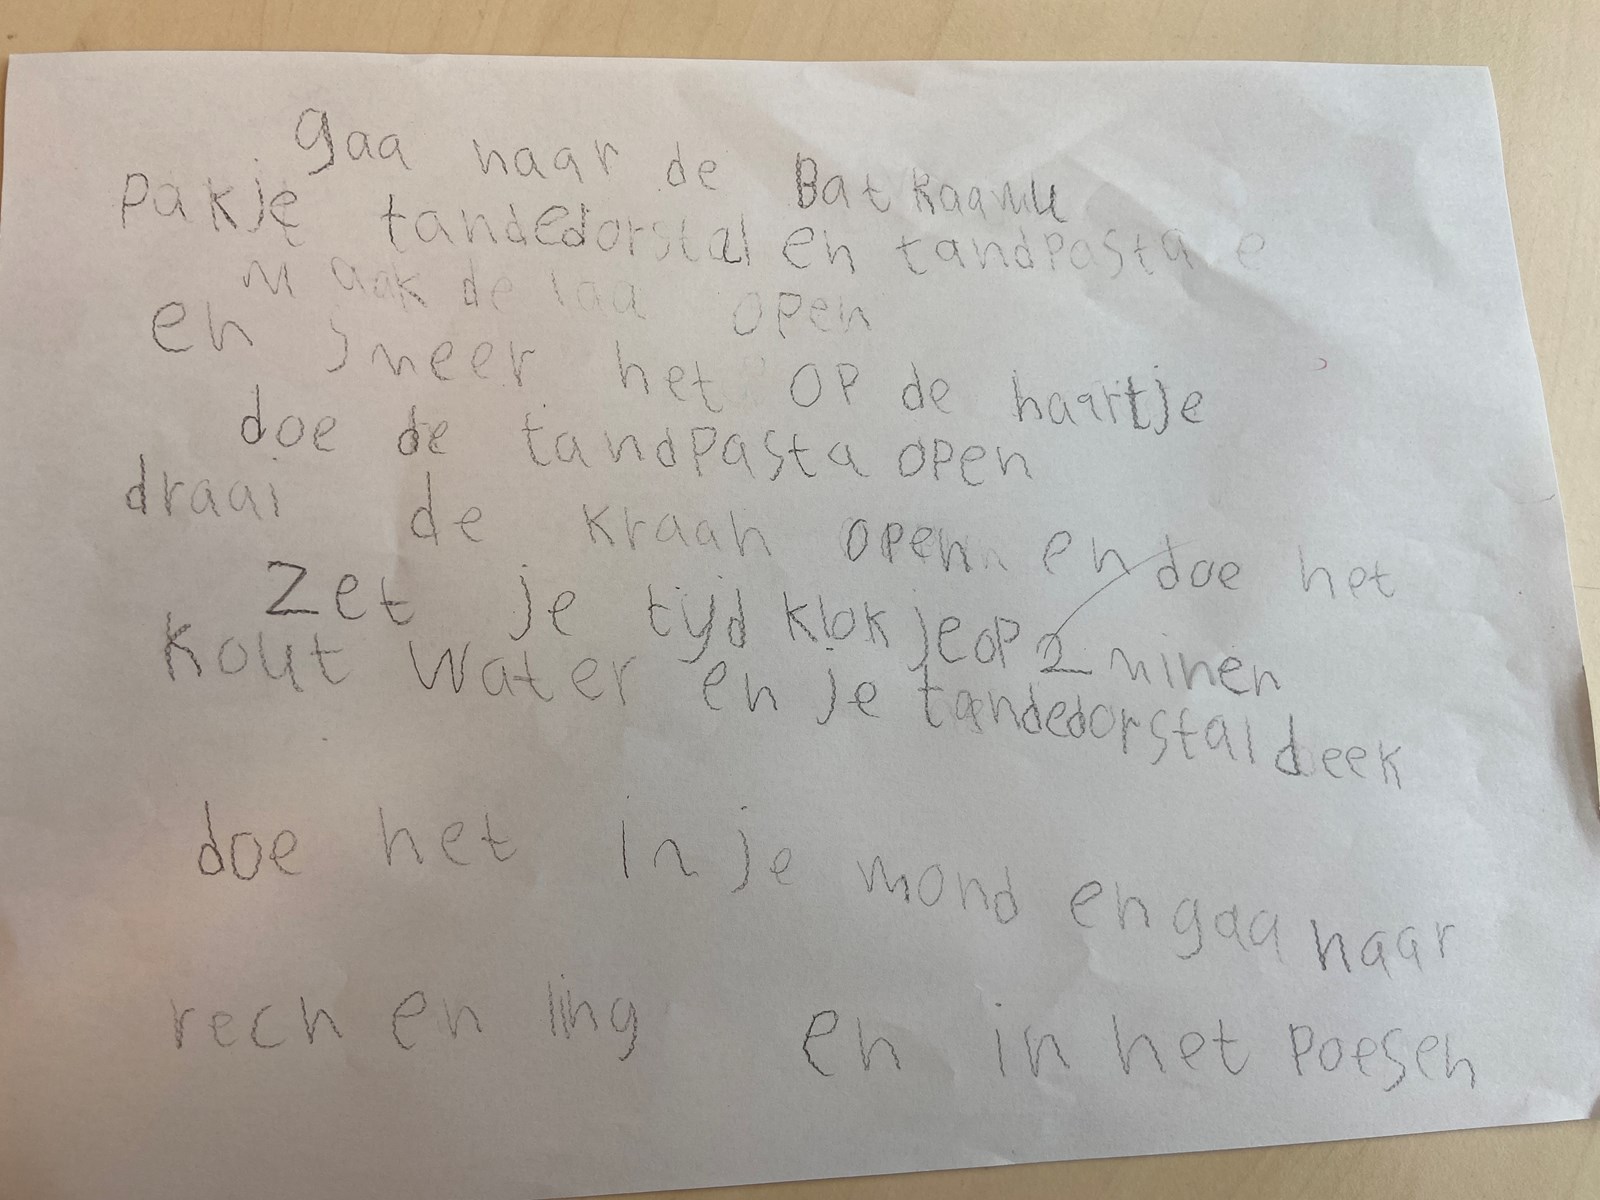 gaa naar de Bat kaamu
pakje tandedorstal en tandpasta e
maak de laa open
en smeer het op de haartje
doe de tandpasta open
draai de kraan open en doe het
Zet je tijd klok je op 2 minen
kout water en je tandedorstal deek
doe het in je mond en gaa naar
rech en ling en in het poesen